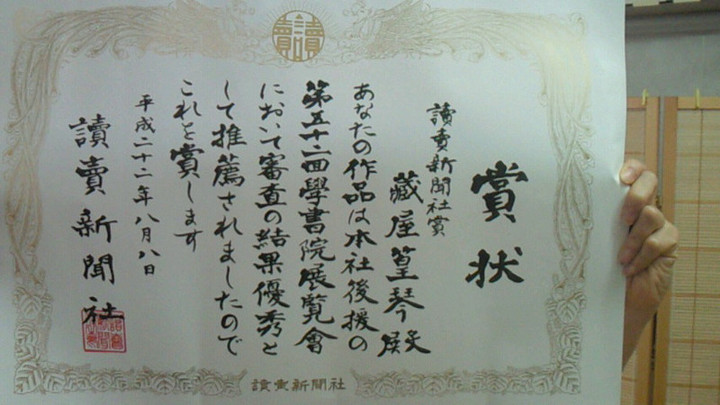 讀賣
賞状
讀賣新聞社賞
藏屋篁琴殿
あなたの作品は本社後援の
第五十二回學書院展覧會
において審査の結果優秀と
して推薦されましたので
これを賞します
平成二十二年八月八日
讀賣新聞社
讀賣新聞社